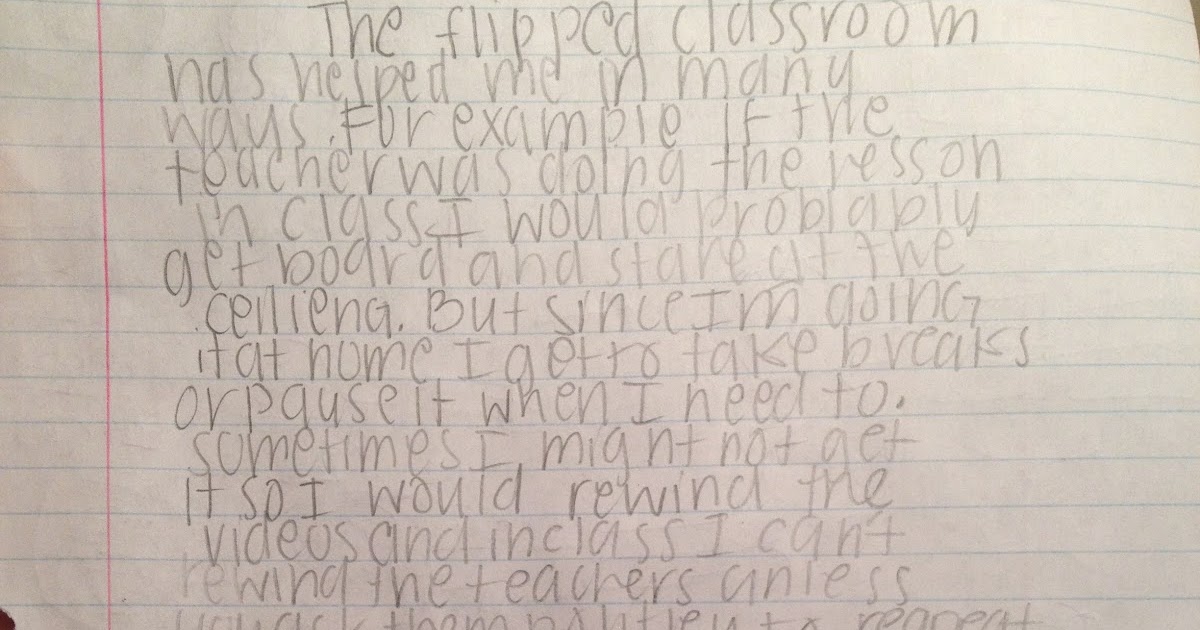 The flipped classroom
has helped me in many
ways. For example if the
teacher was doing the lesson
in class I would problably
get board and stare at the
ceilieng. But since Im doing
it at home I get to take breaks
or pause it when I need to.
sometimes I might not get
it so I would rewind the
videos and in class I can't
rewind the teachers unless
you ask them to repeat